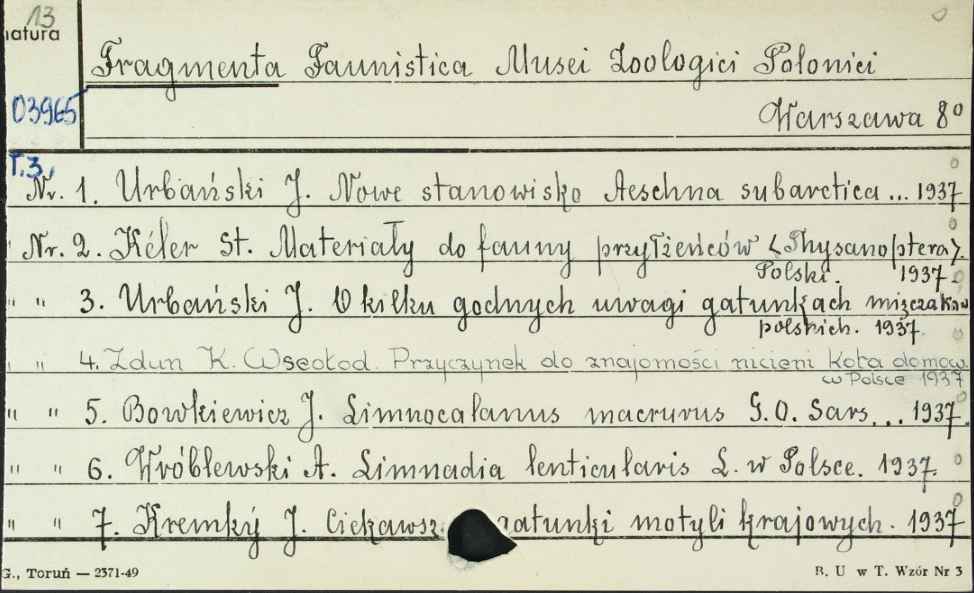 13
natura
Fragmenta Faunistica Musei Zoologici Polonici
03965
Warszawa 8º
T.3.
Nr. 1. Urbański J. Nowe stanowisko Aeschna subarctica ... 1937
Nr. 2. Kéler St. Materiały do fauny przylżeńców (Thysanoptera).
Polski. 1937.
" " 3. Urbański J. O kilku godnych uwagi gatunkach mięczaków
polskich. 1937.
" " 4. Zdun K. Wsеołod. Przyczynek do znajomości nicieni kota domow.
w Polsce 1937
" " 5. Bowkiewicz J. Limnocalanus macrurus G.O. Sars... 1937.
" " 6. Wróblewski A. Limnadia lenticularis L. w Polsce. 1937.
" " 7. Kremký J. Ciekawsz. gatunki motyli krajowych. 1937
G., Toruń — 2371-49
B. U w T. Wzór Nr 3